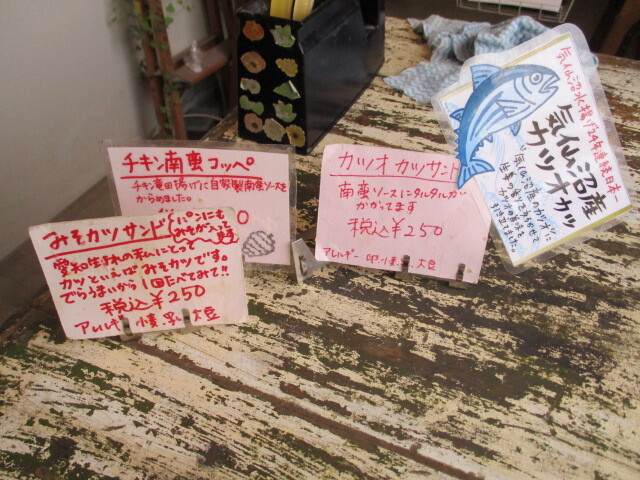 チキン南蛮コッペ
チキン竜田揚げに自家製南蛮ソースを
からめました。
みそカツサンド
パンにも
みそが入って
愛知生まれの私にとって
カツといえばみそカツです。
でらうまいから1回たべてみて!!
税込¥250
アレルギー 小麦.乳.大豆
カツオカツサンド
南蛮ソースにタルタルが
かかってます
税込¥250
アレルギー 卵.小麦.乳.大豆
気仙沼水揚げ24年連続日本一
気仙沼産
カツオカツ
気仙沼産のカツオに
生姜の香りをきかせて